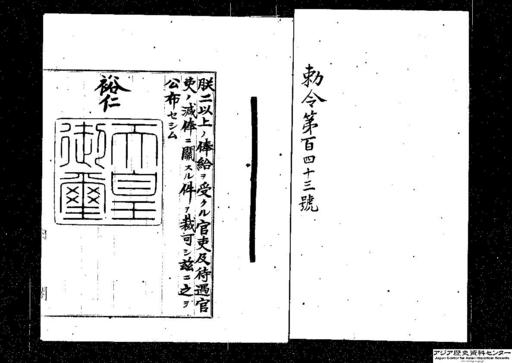 勅令第百四十三號
朕二以上ノ俸給ヲ受クル官吏及待遇官
吏ノ減俸ニ關スル件ヲ裁可シ茲ニ之ヲ
公布セシム
裕仁
天皇
御璽
アジア歴史資料センター
Japan Center for Asian Historical Records